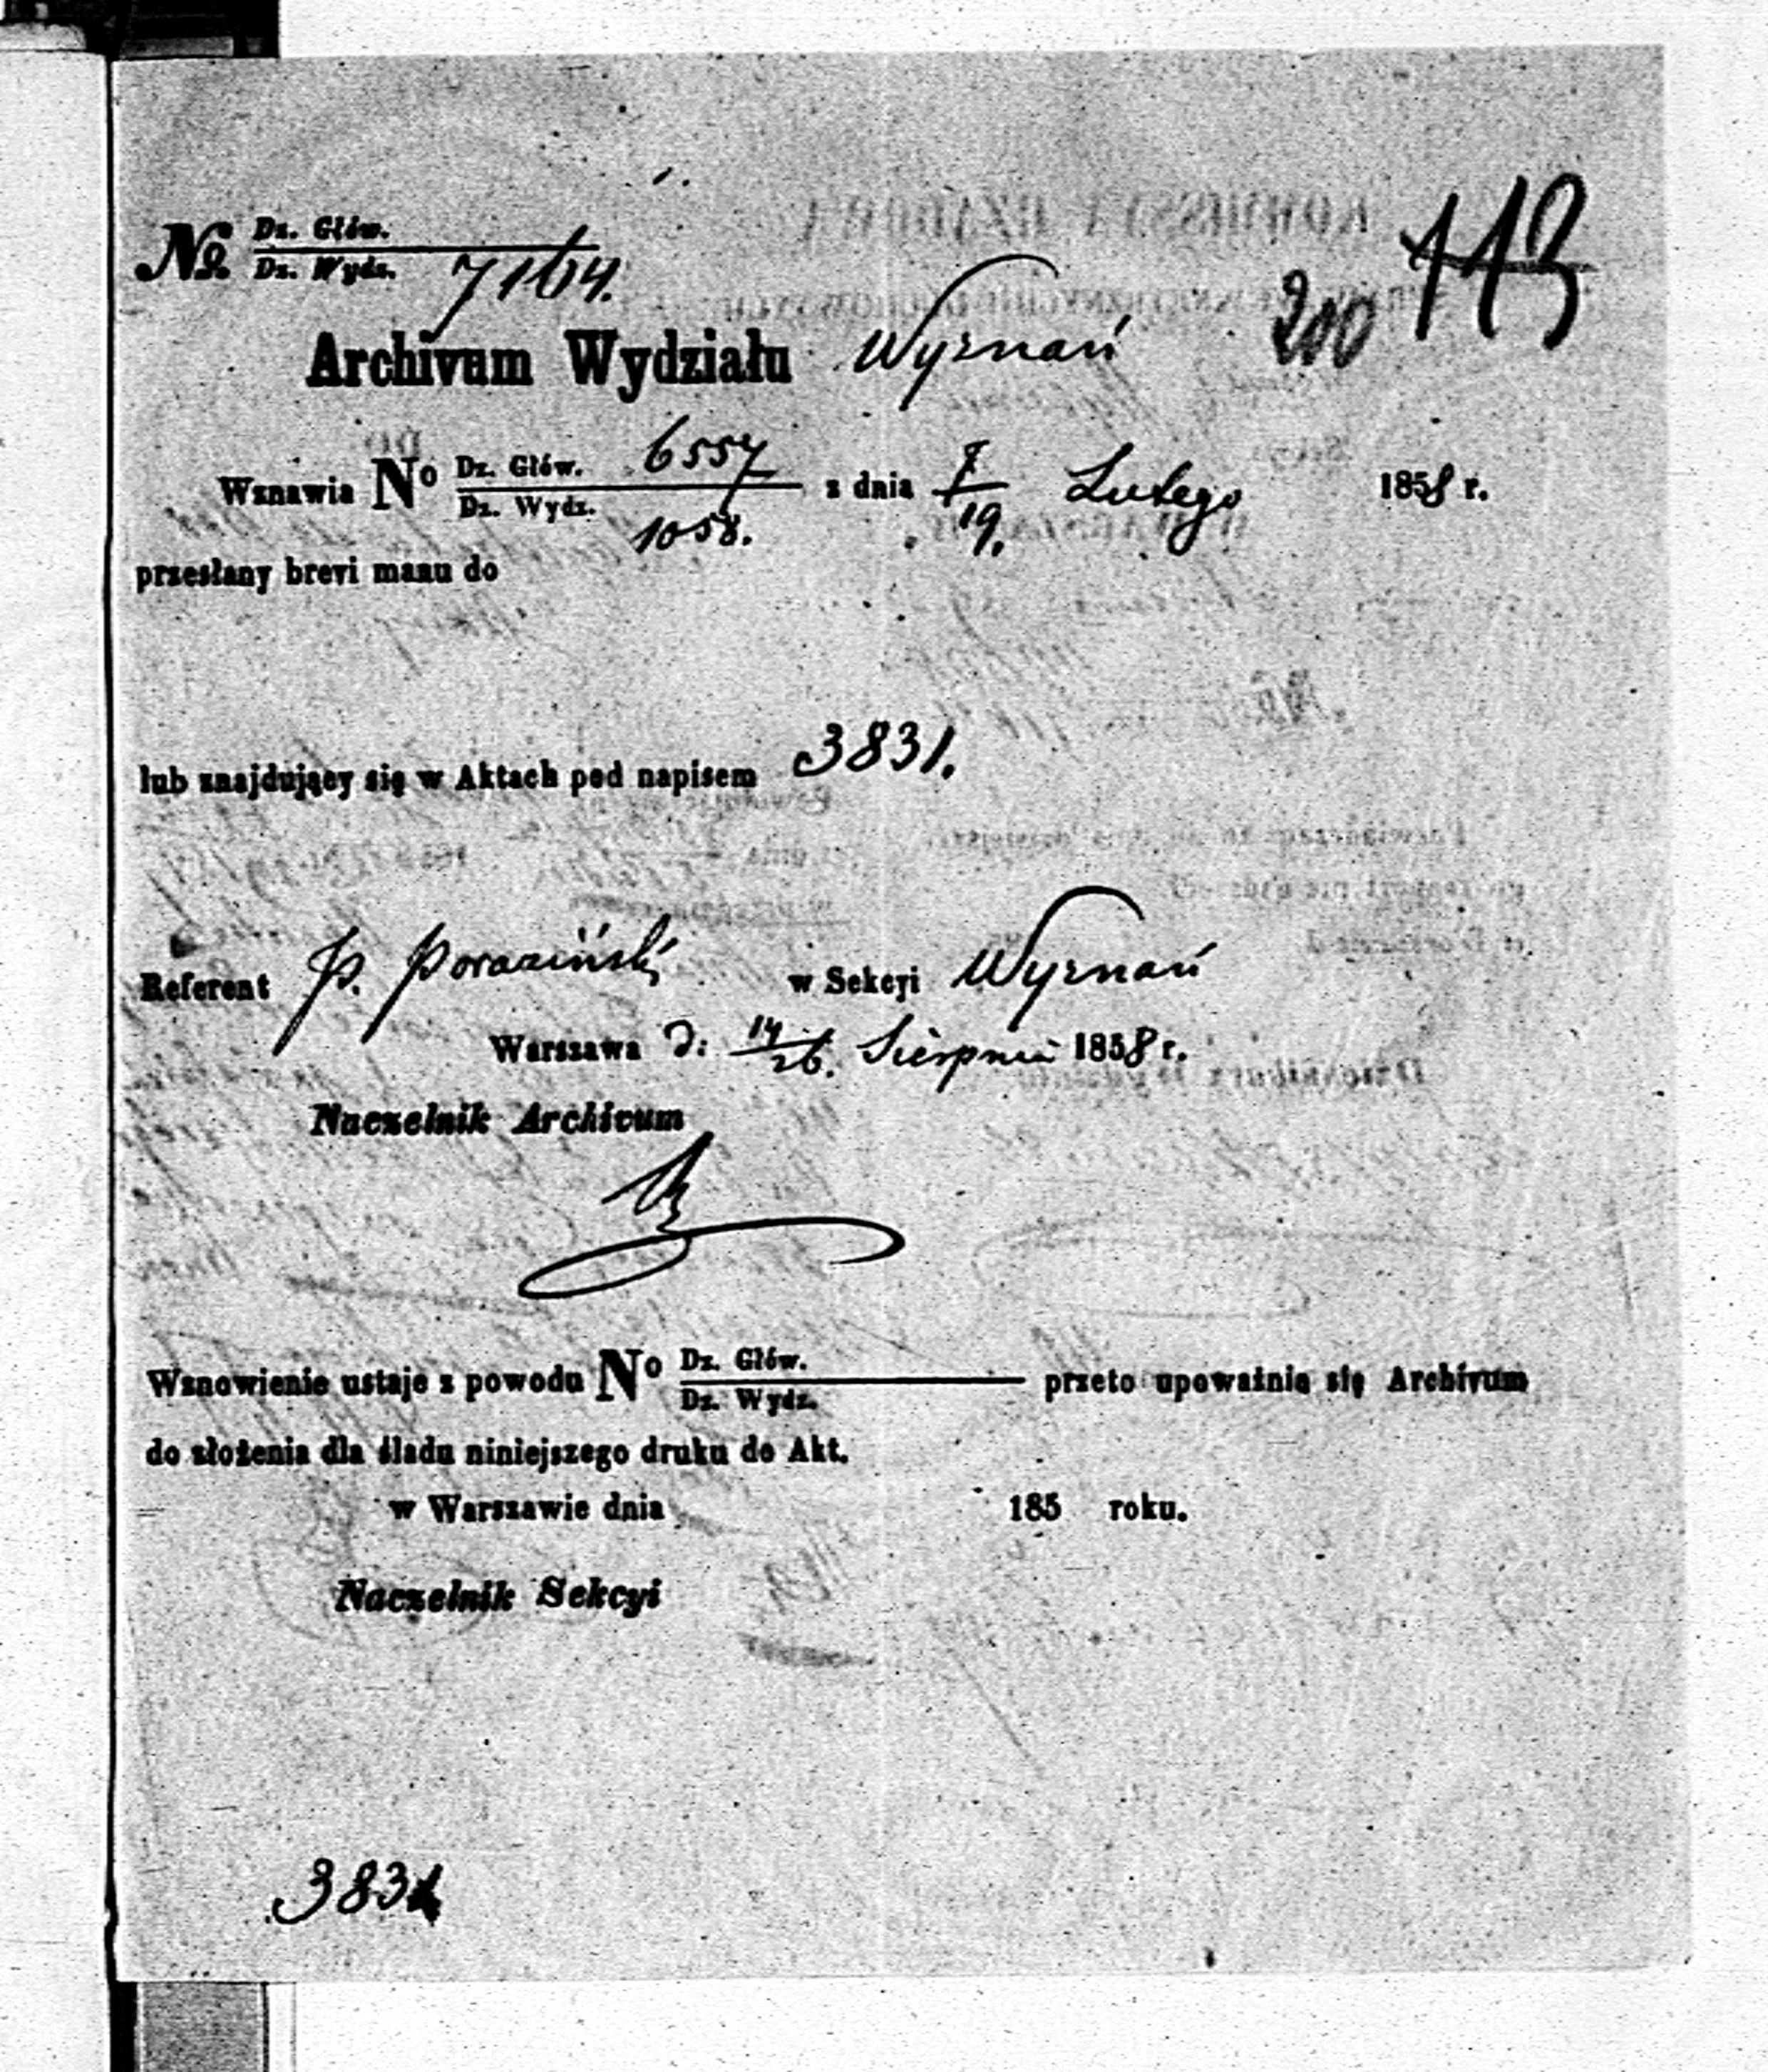 113
200
№ Dz. Głów.
Dz. Wydz. 7164.
Archivum Wydziału Wyznań
Wznawia No Dz. Głów. 6557 z dnia 7/19. Lutego 1858 r.
Dz. Wydz. 1058.
przesłany brevi manu do
lub znajdujący się w Aktach pod napisem 3831.
Referent P. Poraziński w Sekcyi Wyznań
Warszawa d: 14/26. Sierpnia 1858 r.
Naczelnik Archivum
Wznowienie ustaje z powodu No Dz. Głów. przeto upoważnia się Archivum
Dz. Wydz.
do złożenia dla śladu niniejszego druku do Akt.
w Warszawie dnia 185 roku.
Naczelnik Sekcyi
3831